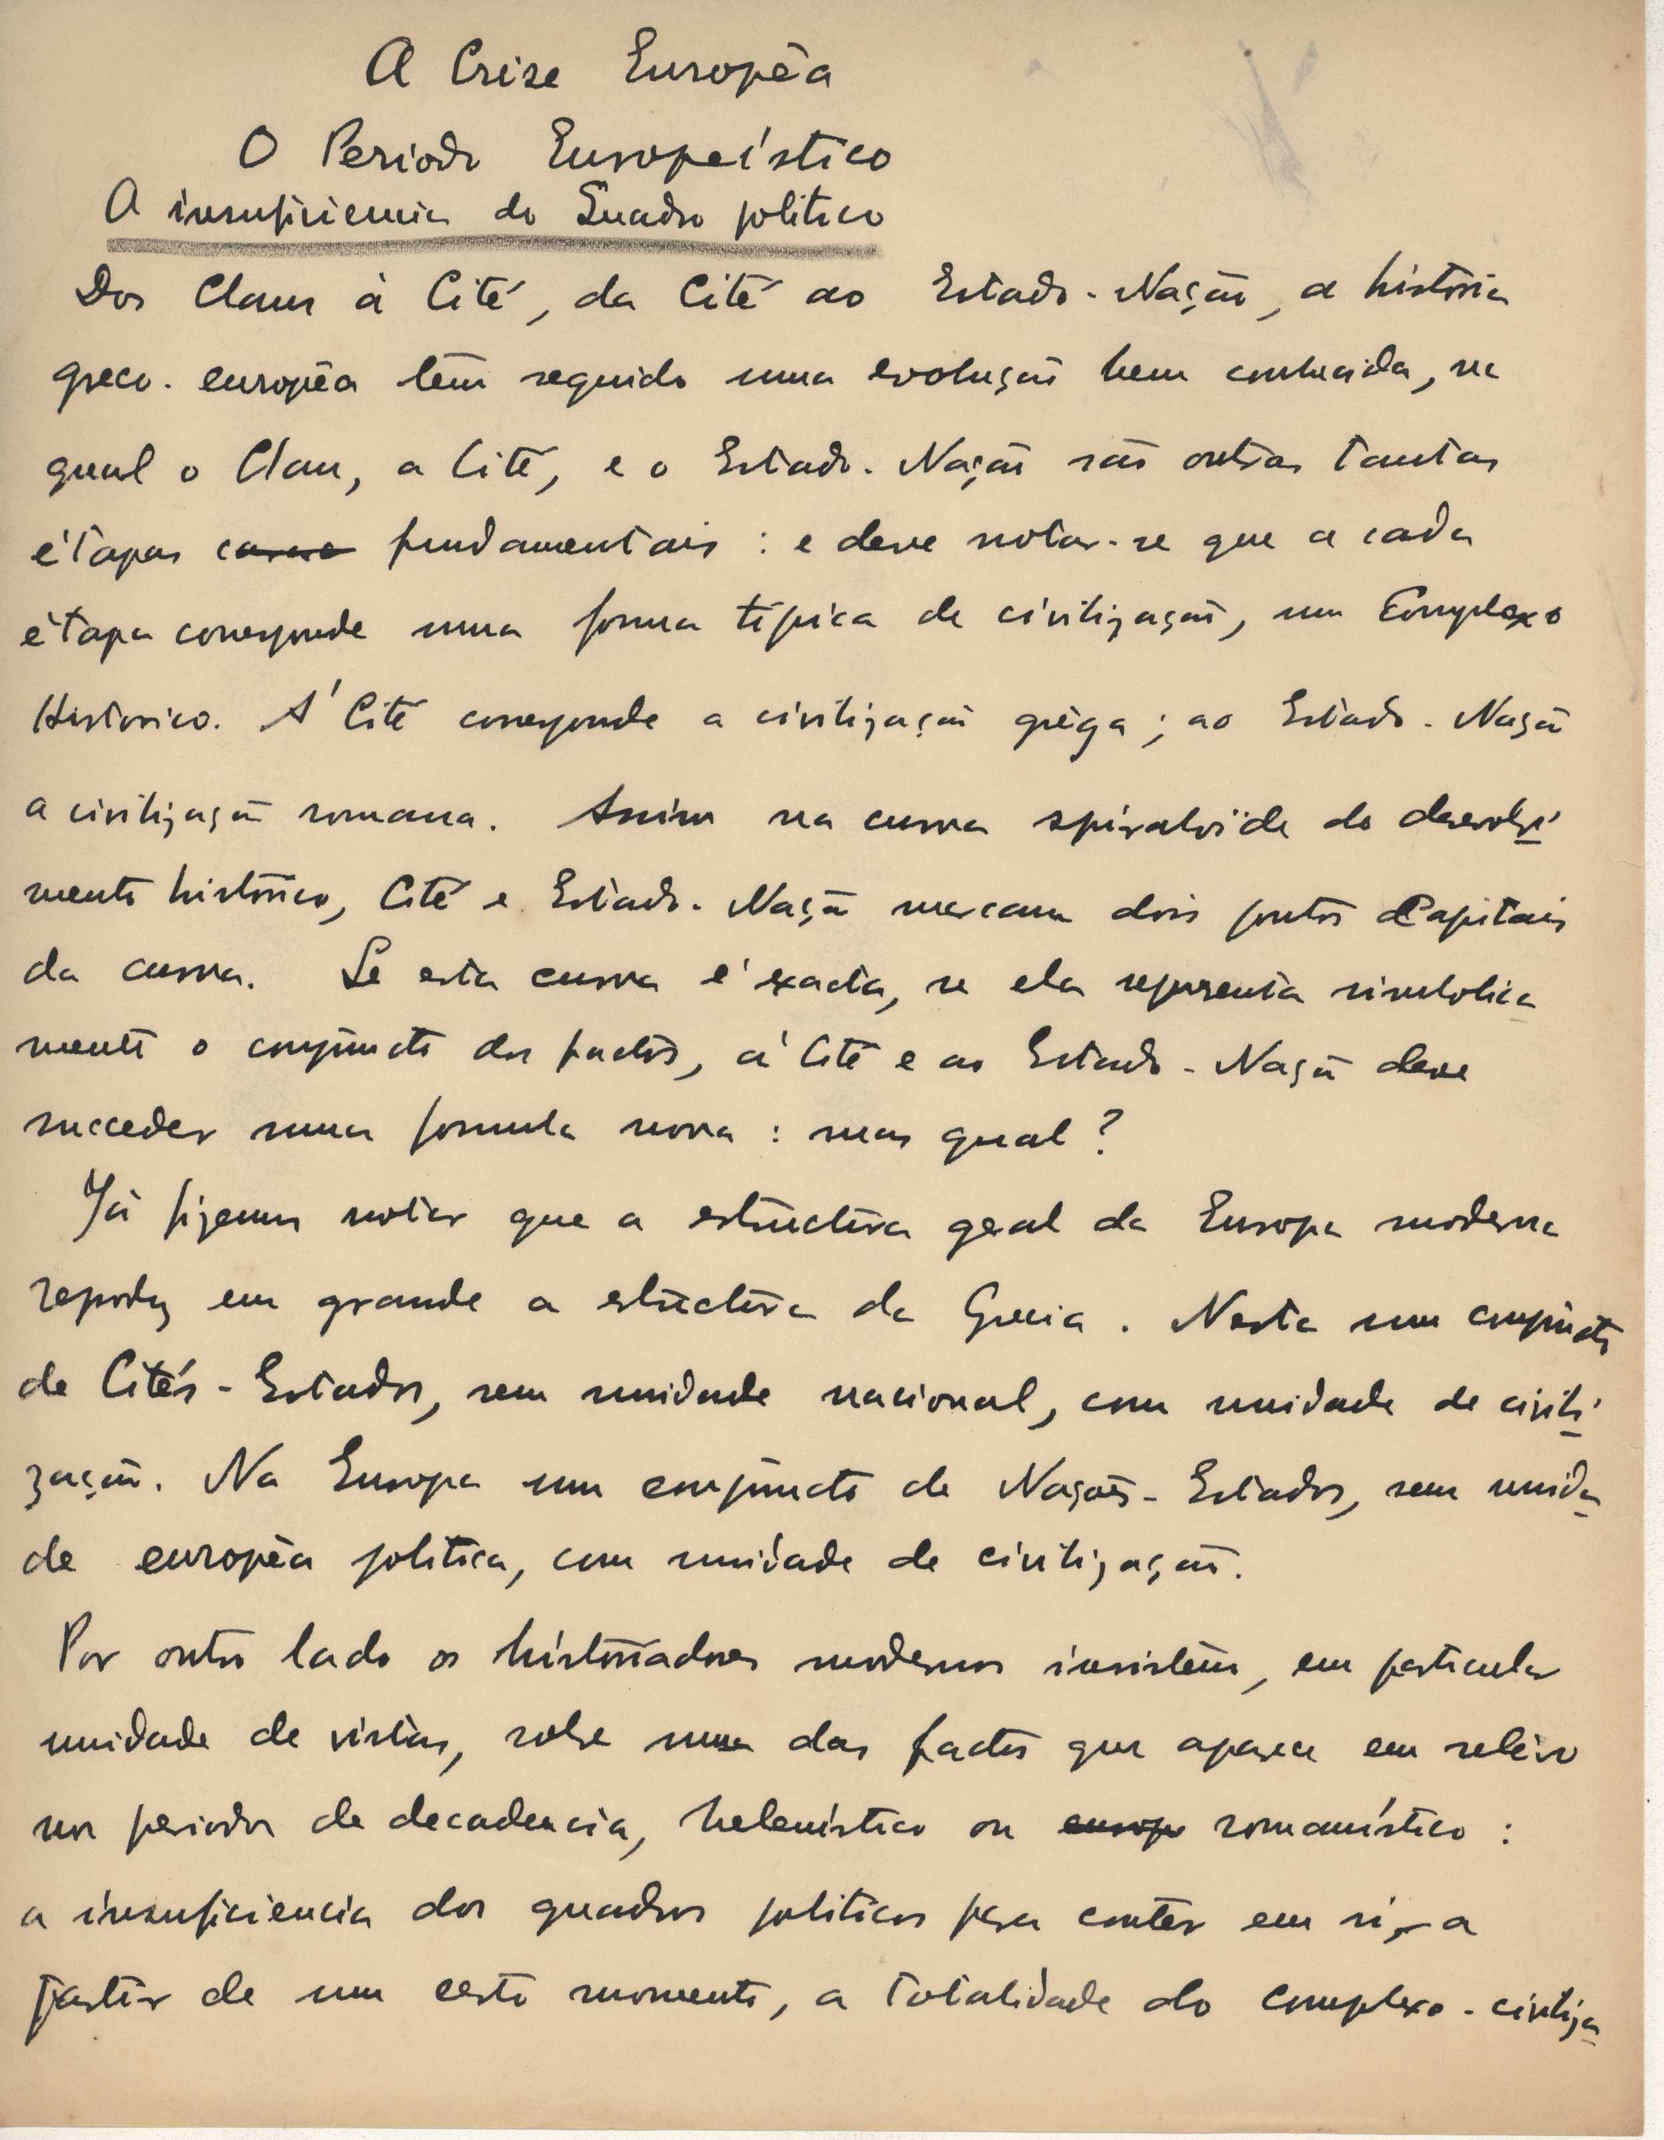 A Crise Europêa
O Periodo Europeístico
A insuficiencia do Quadro politico
Dos Clans á Cité, da Cité ao Estado-Nação, a história
greco-europêa têm seguido uma evolução bem conhecida, na
qual o Clan, a Cité, e o Estado-Nação são outras tantas
étapas como fundamentais : e deve notar-se que a cada
étapa corresponde uma forma típica de civilização, um Complexo
Historico. A' Cité corresponde a civilização grêga ; ao Estado-Nação
a civilização romana. Assim na curva spiraloïde do desenvolvi
mento histórico, Cité e Estado-Nação marcam dois pontos Capitais
da curva. Se esta curva é exacta, se ela representa simbolica
mente o conjuncto dos factos, á Cité e ao Estado-Nação deve
succeder uma formula nova : mas qual ?
Já fizemos notar que a estructura geral da Europa moderna
reproduz em grande a estructura da Grecia. Nesta um conjuncto
de Cités-Estados, sem unidade nacional, com unidade de civili
zação. Na Europa um conjuncto de Nações-Estados, sem unida
de europêa politica, com unidade de civilização.
Por outro lado os históriadores modernos insistem, em particular
unidade de vistas, sobre um dos factos que aparece em relêvo
nos periodos de decadencia, helenístico ou europe romanístico :
a insuficiencia dos quadros politicos para contêr em si, a
partir de um certo momento, a totalidade do complexo-civiliza